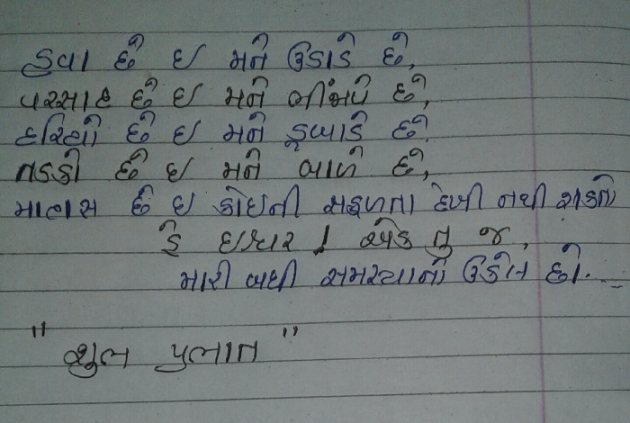 હવા છે ઇ મને ઉડાડે છે,
વરસાદ છે ઇ મને ભીંજવે છે,
દરિયો છે ઇ મને ડુબાડે છે.
તડકો છે ઇ મને બાળે છે,
માણસ છે ઇ કોઇની સફળતા દેખી નથી શકતો
હે ઇશ્વર ! એક તુ જ,
મારી બધી સમસ્યાનો ઉકેલ છો.
" શુભ પ્રભાત "